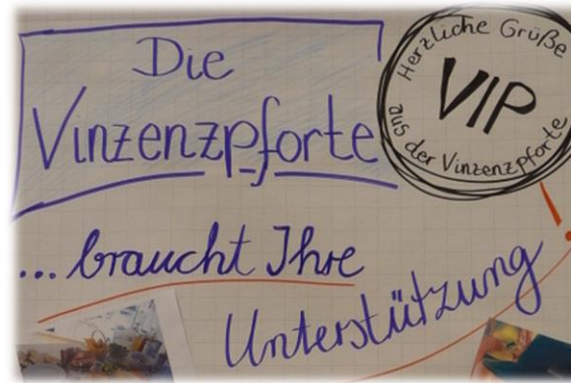 Die
Vinzenzpforte
Herzliche Grüße
VIP
aus der Vinzenzpforte
... braucht Ihre
Unterstützung!